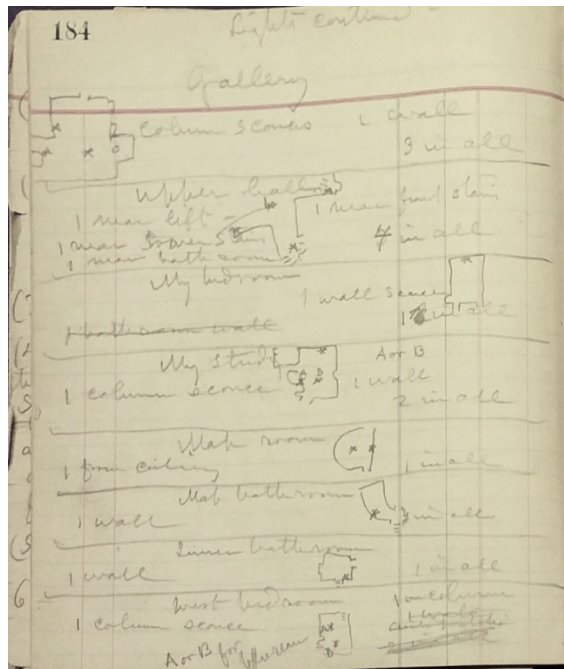 184
Lights continued -
Gallery
column sconces 1 wall
3 in all
Upper hall
1 near lift - 1 near front stairs
1 near tower stairs 4 in all
1 near bathroom
My bedroom
1 wall sconce
1 in all
1 bathroom wall
My study A or B
1 column sconce A B 1 wall
2 in all
Mab room
1 from ceiling 1 in all
Mab bathroom
1 wall in all
Inner bathroom
1 wall 1 in all
West bedroom 1 on column
1 column sconce 1 wall
A or B for